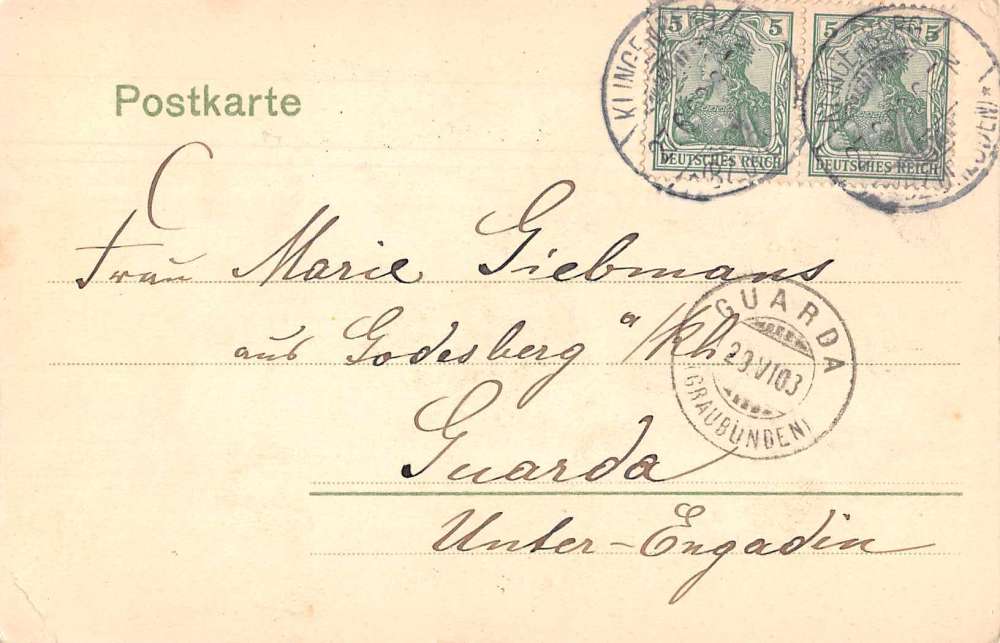 5 5 5 5
DEUTSCHES REICH DEUTSCHES REICH
KLINGENBERG
KLINGENBERG
Postkarte
Frau Marie Giebmans
aus Godesberg a/Rh.
GUARDA
29 VI 03
(GRAUBÜNDEN)
Guarda
Unter-Engadin